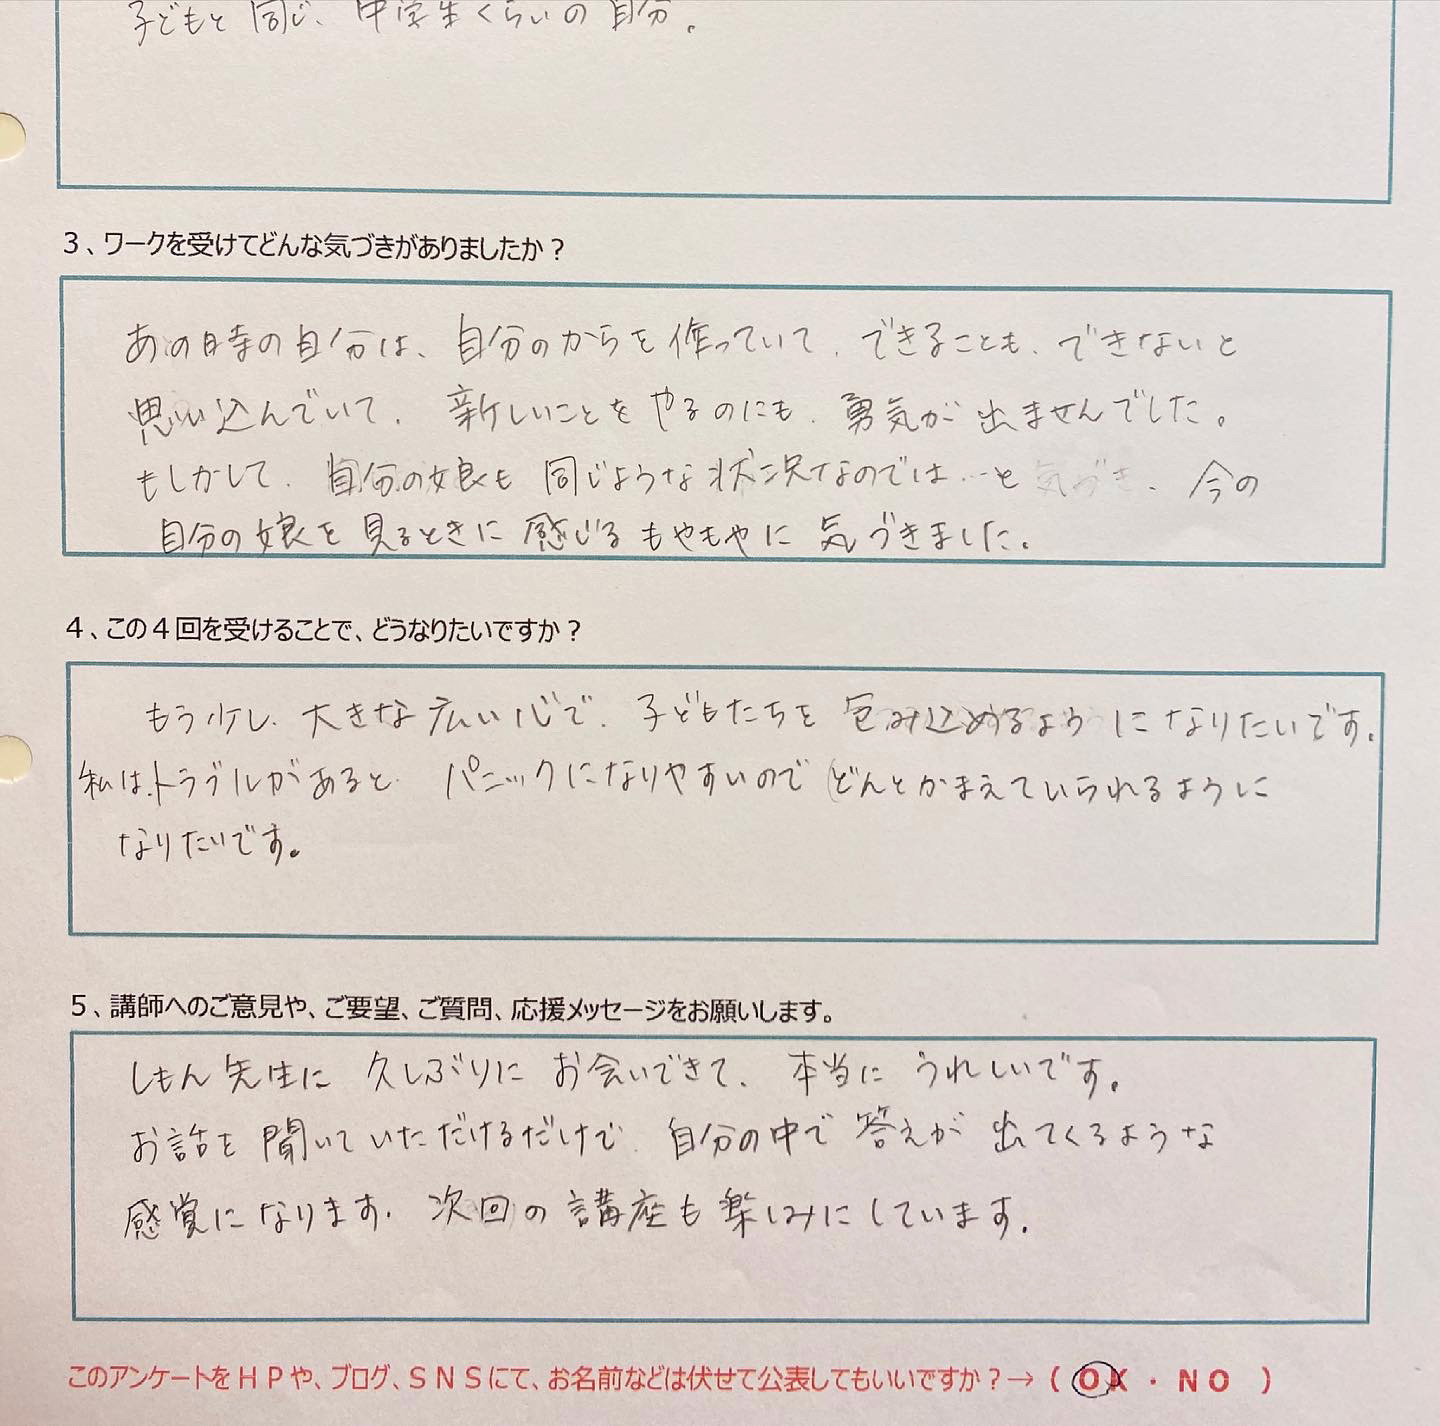 子どもと同じ、中学生くらいの自分。
3、ワークを受けてどんな気づきがありましたか？
あの時の自分は、自分のからを作っていて、できることも、できないと
思い込んでいて、新しいことをやるのにも、勇気が出ませんでした。
もしかして、自分の娘も同じような状況なのでは…と気づき、今の
自分の娘を見るときに感じるもやもやに気づきました。
4、この4回を受けることで、どうなりたいですか？
もう少し、大きな広い心で、子どもたちを包み込めるようになりたいです。
私は、トラブルがあると、パニックになりやすいのでどんとかまえていられるように
なりたいです。
5、講師へのご意見や、ご要望、ご質問、応援メッセージをお願いします。
しもん先生に久しぶりにお会いできて、本当にうれしいです。
お話を聞いていただけるだけで自分の中で答えが出てくるような
感覚になります。次回の講座も楽しみにしています。
このアンケートをＨＰや、ブログ、ＳＮＳにて、お名前などは伏せて公表してもいいですか？→（ＯＫ・ＮＯ ）